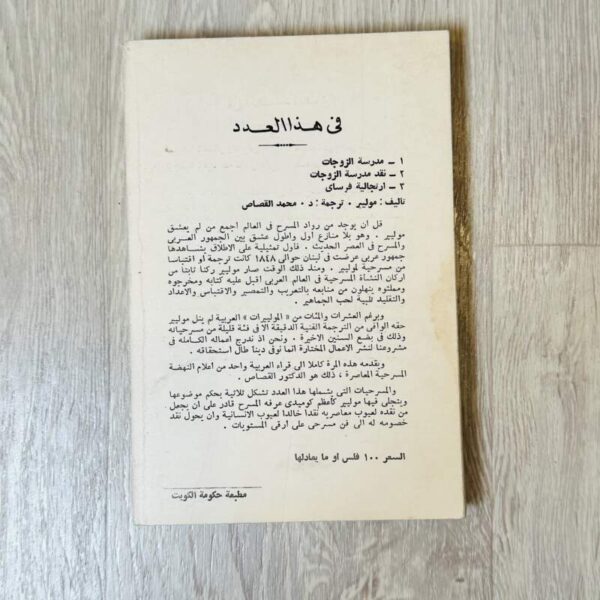 فى هذا العدد
١ ــ مدرسة الزوجات
٢ ــ نقد مدرسة الزوجات
٣ ــ ارتجالية فرساى
تأليف : موليير ٠ ترجمة : د ٠ محمد القصاص
قل ان يوجد من رواد المسرح فى العالم اجمع من لم يعشق
موليير ٠ وهو بلا منازع أول وأطول عشق بين الجمهور العربى
والمسرح فى العصر الحديث ٠ فأول تمثيلية على الاطلاق يشاهدها
جمهور عربى عرضت فى لبنان حوالى ١٨٤٨ كانت ترجمة أو اقتباسا
من مسرحية لموليير ٠ ومنذ ذلك الوقت صار موليير ركنا ثابتا من
اركان النشأة المسرحية فى العالم العربى اقبل عليه كتابه ومخرجوه
وممثلوه ينهلون من منابعه بالتعريب والتمصير والاقتباس والاعداد
والتقليد تلبية لحب الجماهير ٠
وبرغم العشرات والمئات من « الموليرات » العربية لم ينل موليير
حقه الوافى من الترجمة الفنية الدقيقة الا فى فئة قليلة من مسرحياته
وذلك فى بضع السنين الاخيرة ٠ ونحن اذ ندرج اعماله الكاملة فى
مشروعنا لنشر الاعمال المختارة انما نوفى دينا طال استحقاقه ٠
ويقدمه هذه المرة كاملا الى قراء العربية واحد من أعلام النهضة
المسرحية المعاصرة ، ذلك هو الدكتور القصاص ٠
والمسرحيات التى يشملها هذا العدد تشكل ثلاثية بحكم موضوعها
ويتجلى فيها موليير كأعظم كوميدى عرفه المسرح قادر على ان يجعل
من نقده لعيوب معاصريه نقدا خالدا لعيوب الانسانية وان يحول نقد
خصومه له الى فن مسرحى على أرقى المستويات ٠
السعر ١٠٠ فلس او ما يعادلها
مطبعة حكومة الكويت